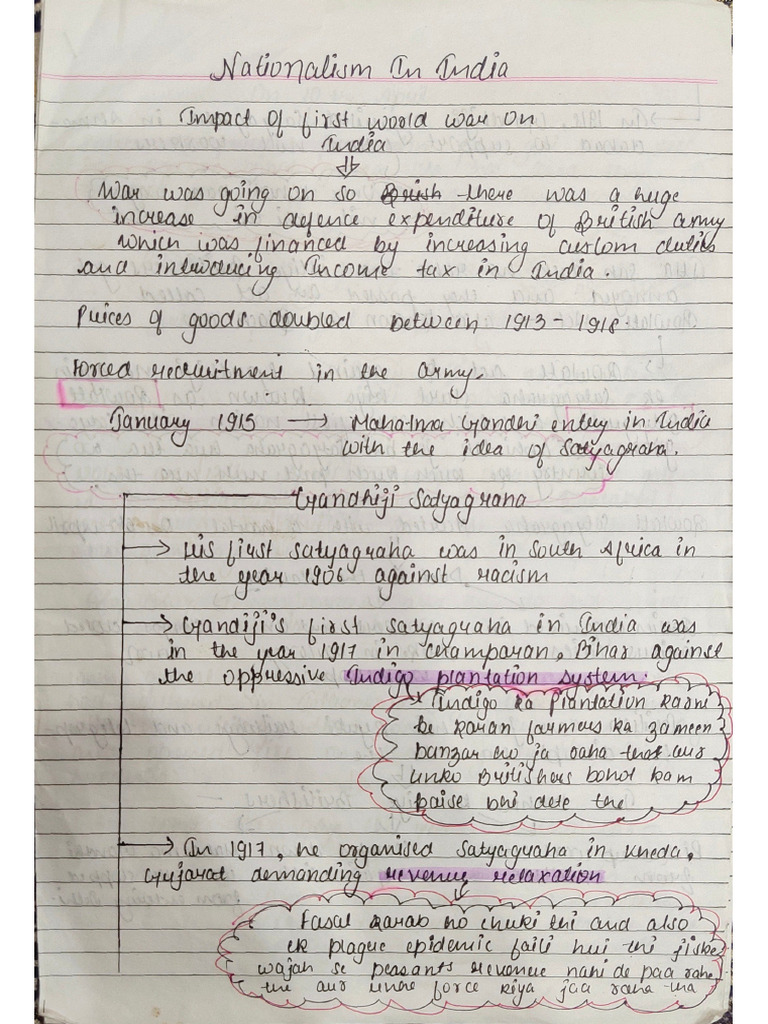 Nationalism In India
Impact of first world war on
India
War was going on so there was a huge
increase in defence expenditure of British army
which was financed by increasing custom duties
and introducing Income tax in India.
Prices of goods doubled between 1913-1918.
Forced recruitment in the army.
January 1915 → Mahatma Gandhi entry in India
with the idea of Satyagraha.
Gandhiji Satyagraha
→ His first satyagraha was in South Africa in
the year 1906 against racism
→ Gandiji's first satyagraha in India was
in the year 1917 in Champaran, Bihar against
the oppressive Indigo plantation system.
Indigo ka Plantation karne
ke karan farmers ka zameen
banzar ho ja raha tha aur
unko Britishers bohot kam
paise bhi dete the
→ In 1917, he organised Satyagraha in Kheda,
Gujarat demanding revenue relaxation
Fasal kharab ho chuki thi and also
ek plague epidemic faili hui thi jiske
wajah se peasants revenue nahi de paa rahe
the aur unhe force kiya jaa raha tha